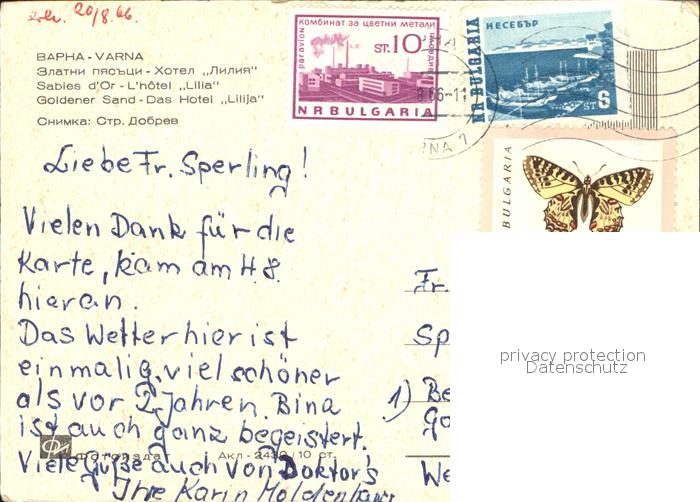 erh. 20/8.66.
ВАРНА - VARNA
Златни пясъци - Хотел „Лилия"
Sabies d'Or - L'hôtel „Lilia"
Goldener Sand - Das Hotel „Lilija"
Снимка: Стр. Добрев
КОМБИНАТ ЗА ЦВЕТНИ МЕТАЛИ
paravion
ПЛОВДИВ
ST. 10
NR BULGARIA
НЕСЕБЪР
NR BULGARIA
ST 6
8.66-11
BULGARIA
Liebe Fr. Sperling!
Vielen Dank für die
Karte, kam am 14.8.
hieran.
Das Wetter hier ist
einmalig, viel schöner
als vor 2 Jahren. Bina
ist auch ganz begeistert.
Viele Grüße auch von Doktor's
Ihre Karin Moldenhauer
Фотоиздат Акл - 2430 / 10 ст.
Fr.
Sp
1) Be
Go
We
privacy protection
Datenschutz